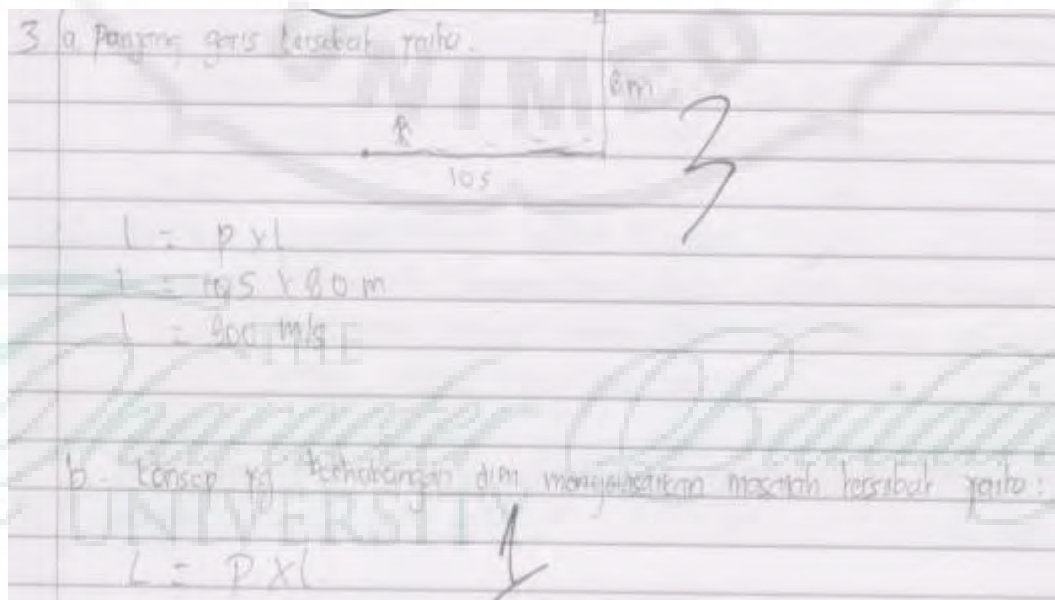 3 a. Panjang garis tersebut yaitu.
8m
3
10 s
l = p x l
l = 10 s x 80 m
l = 800 m/s
b. konsep yg terhubungan dlm mengusaikan masalah tersebut yaitu:
1
L = P x l
UNIMED
THE
Character Building
UNIVERSITY